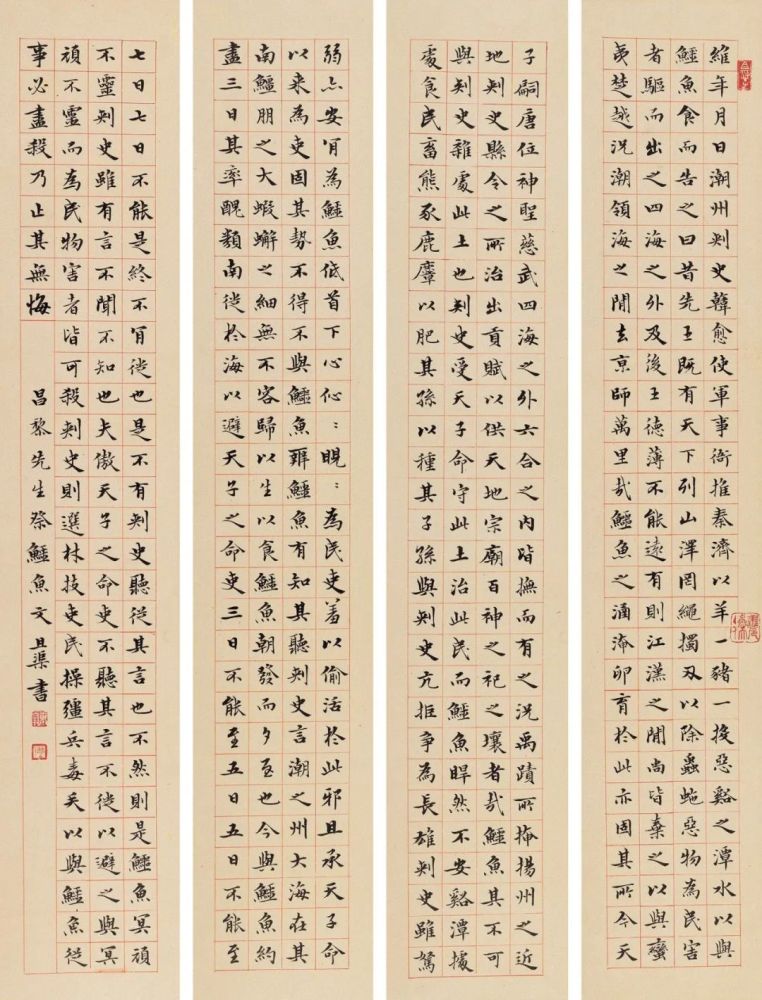 維年月日潮州刺史韓愈使軍事衙推秦濟以羊一豬一投惡谿之潭水以與
鱷魚食而告之曰昔先王既有天下列山澤罔繩擉刃以除蟲虵惡物為民害
者驅而出之四海之外及後王德薄不能遠有則江漢之閒尚皆棄之以與蠻
夷楚越況潮領海之閒去亰師萬里哉鱷魚之涵淹卵育於此亦固其所今天
子嗣唐位神聖慈武四海之外六合之内皆撫而有之況禹蹟所揜揚州之近
地刺史縣令之所治出貢賦以供天地宗廟百神之祀之壤者哉鱷魚其不可
與刺史雜處此土也刺史受天子命守此土治此民而鱷魚睅然不安谿潭據
處食民畜熊豕鹿麞以肥其孫以種其子孫與刺史亢拒爭為長雄刺史雖駑
弱亦安肯為鱷魚低首下心伈：睍：為民吏羞以偷活於此邪且承天子命
以来為吏固其勢不得不與鱷魚辨鱷魚有知其聽刺史言潮之州大海在其
南鱷朋之大蝦蠏之細無不容歸以生以食鱷魚朝發而夕至也今與鱷魚約
盡三日其率醜類南徙於海以避天子之命吏三日不能至五日五日不能至
七日七日不能是終不肯徙也是不有刺史聽從其言也不然則是鱷魚冥頑
不靈刺史雖有言不聞不知也夫傲天子之命吏不聽其言不徙以避之與冥
頑不靈而為民物害者皆可殺刺史則選材技吏民操彊兵毒矢以與鱷魚從
事必盡殺乃止其無悔 昌黎先生祭鱷魚文 且渠書